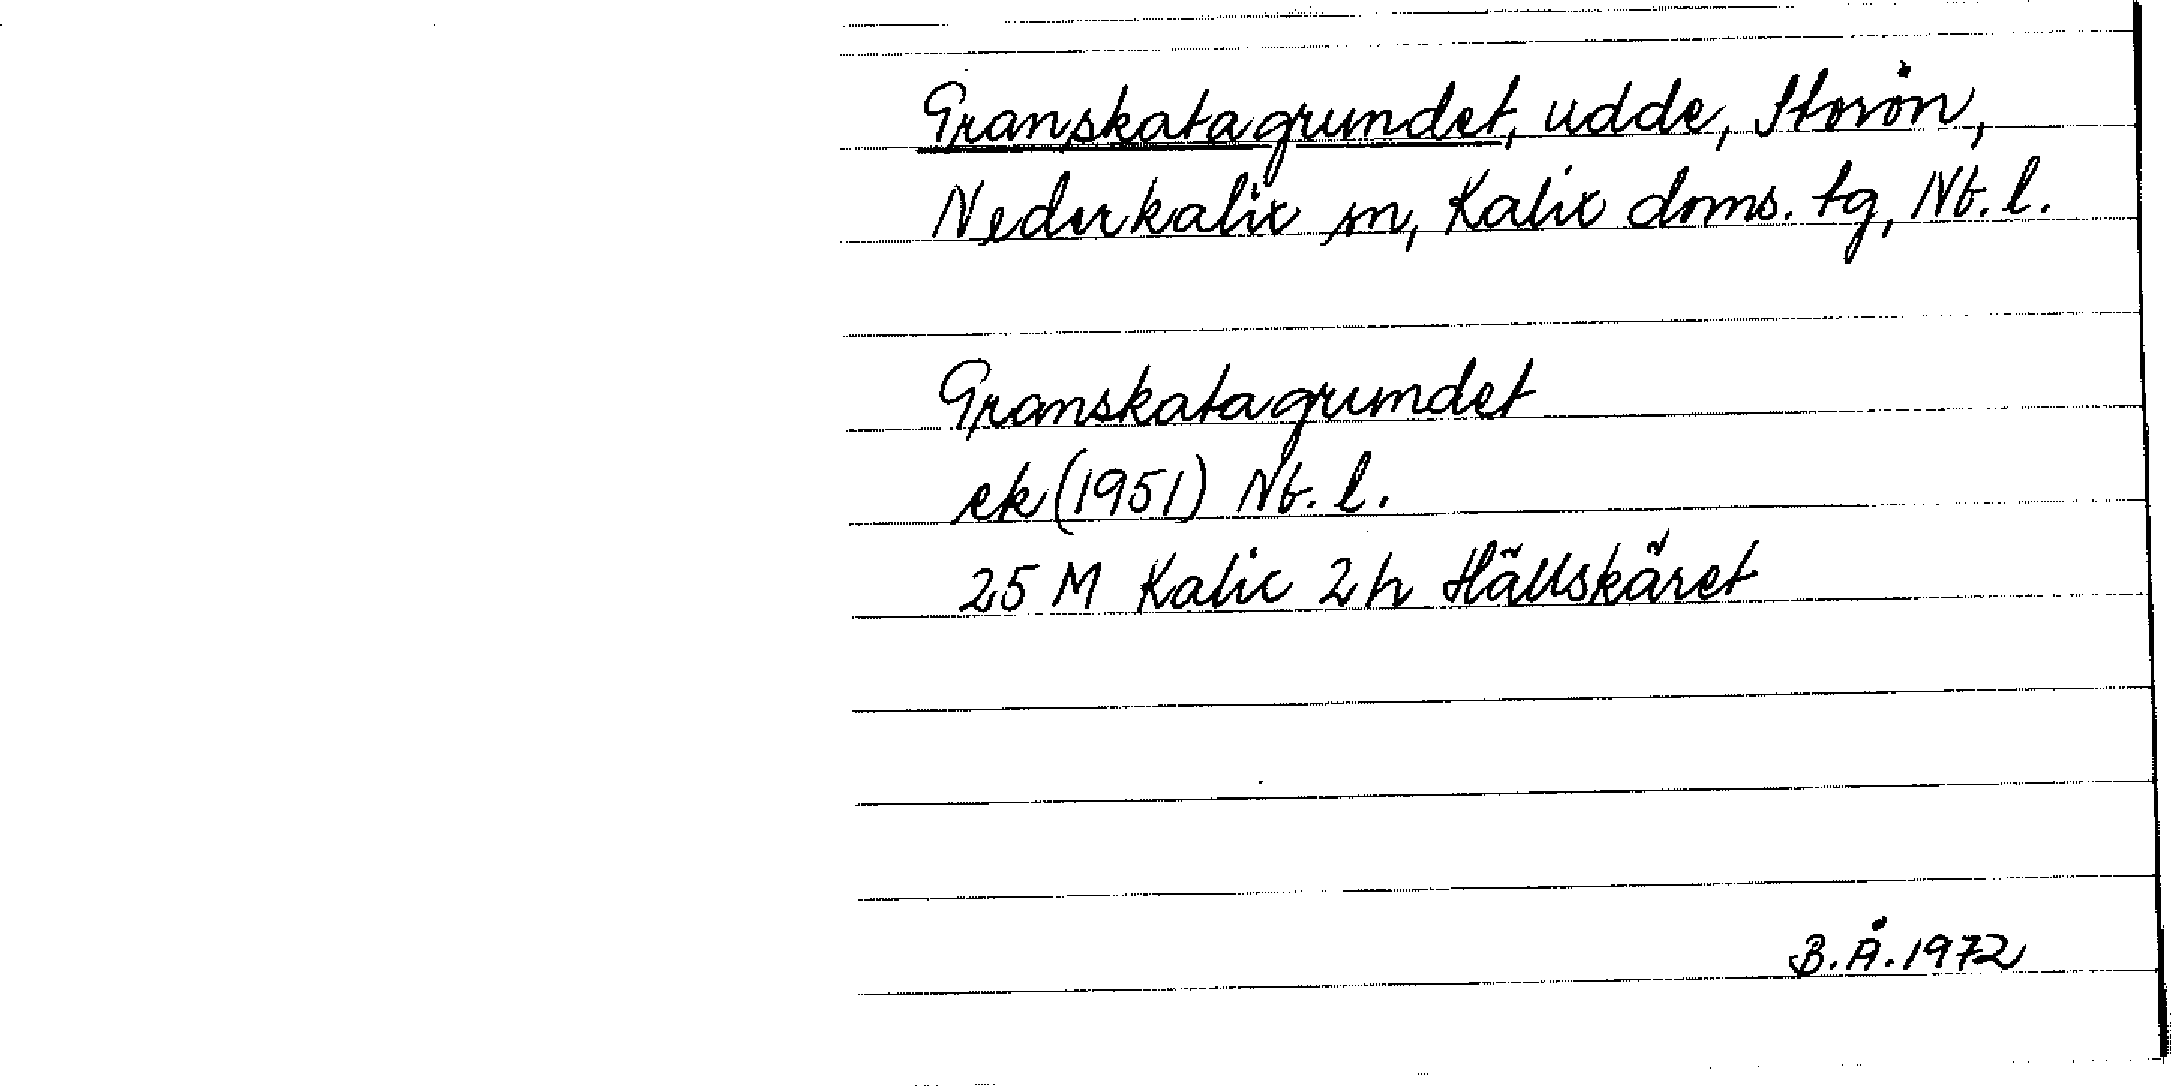 Granskatagrundet, udde, Storön,
Nederkalix sn, Kalix doms. tg, Nb. l.
Granskatagrundet
ek (1951) Nb. l.
25 M Kalix 2h Hällskäret
B.Å. 1972